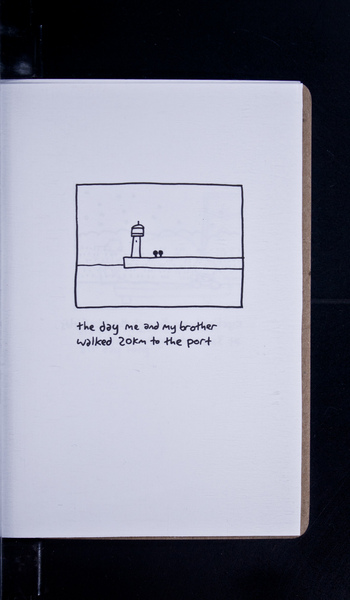 the day me and my brother
walked 20km to the port